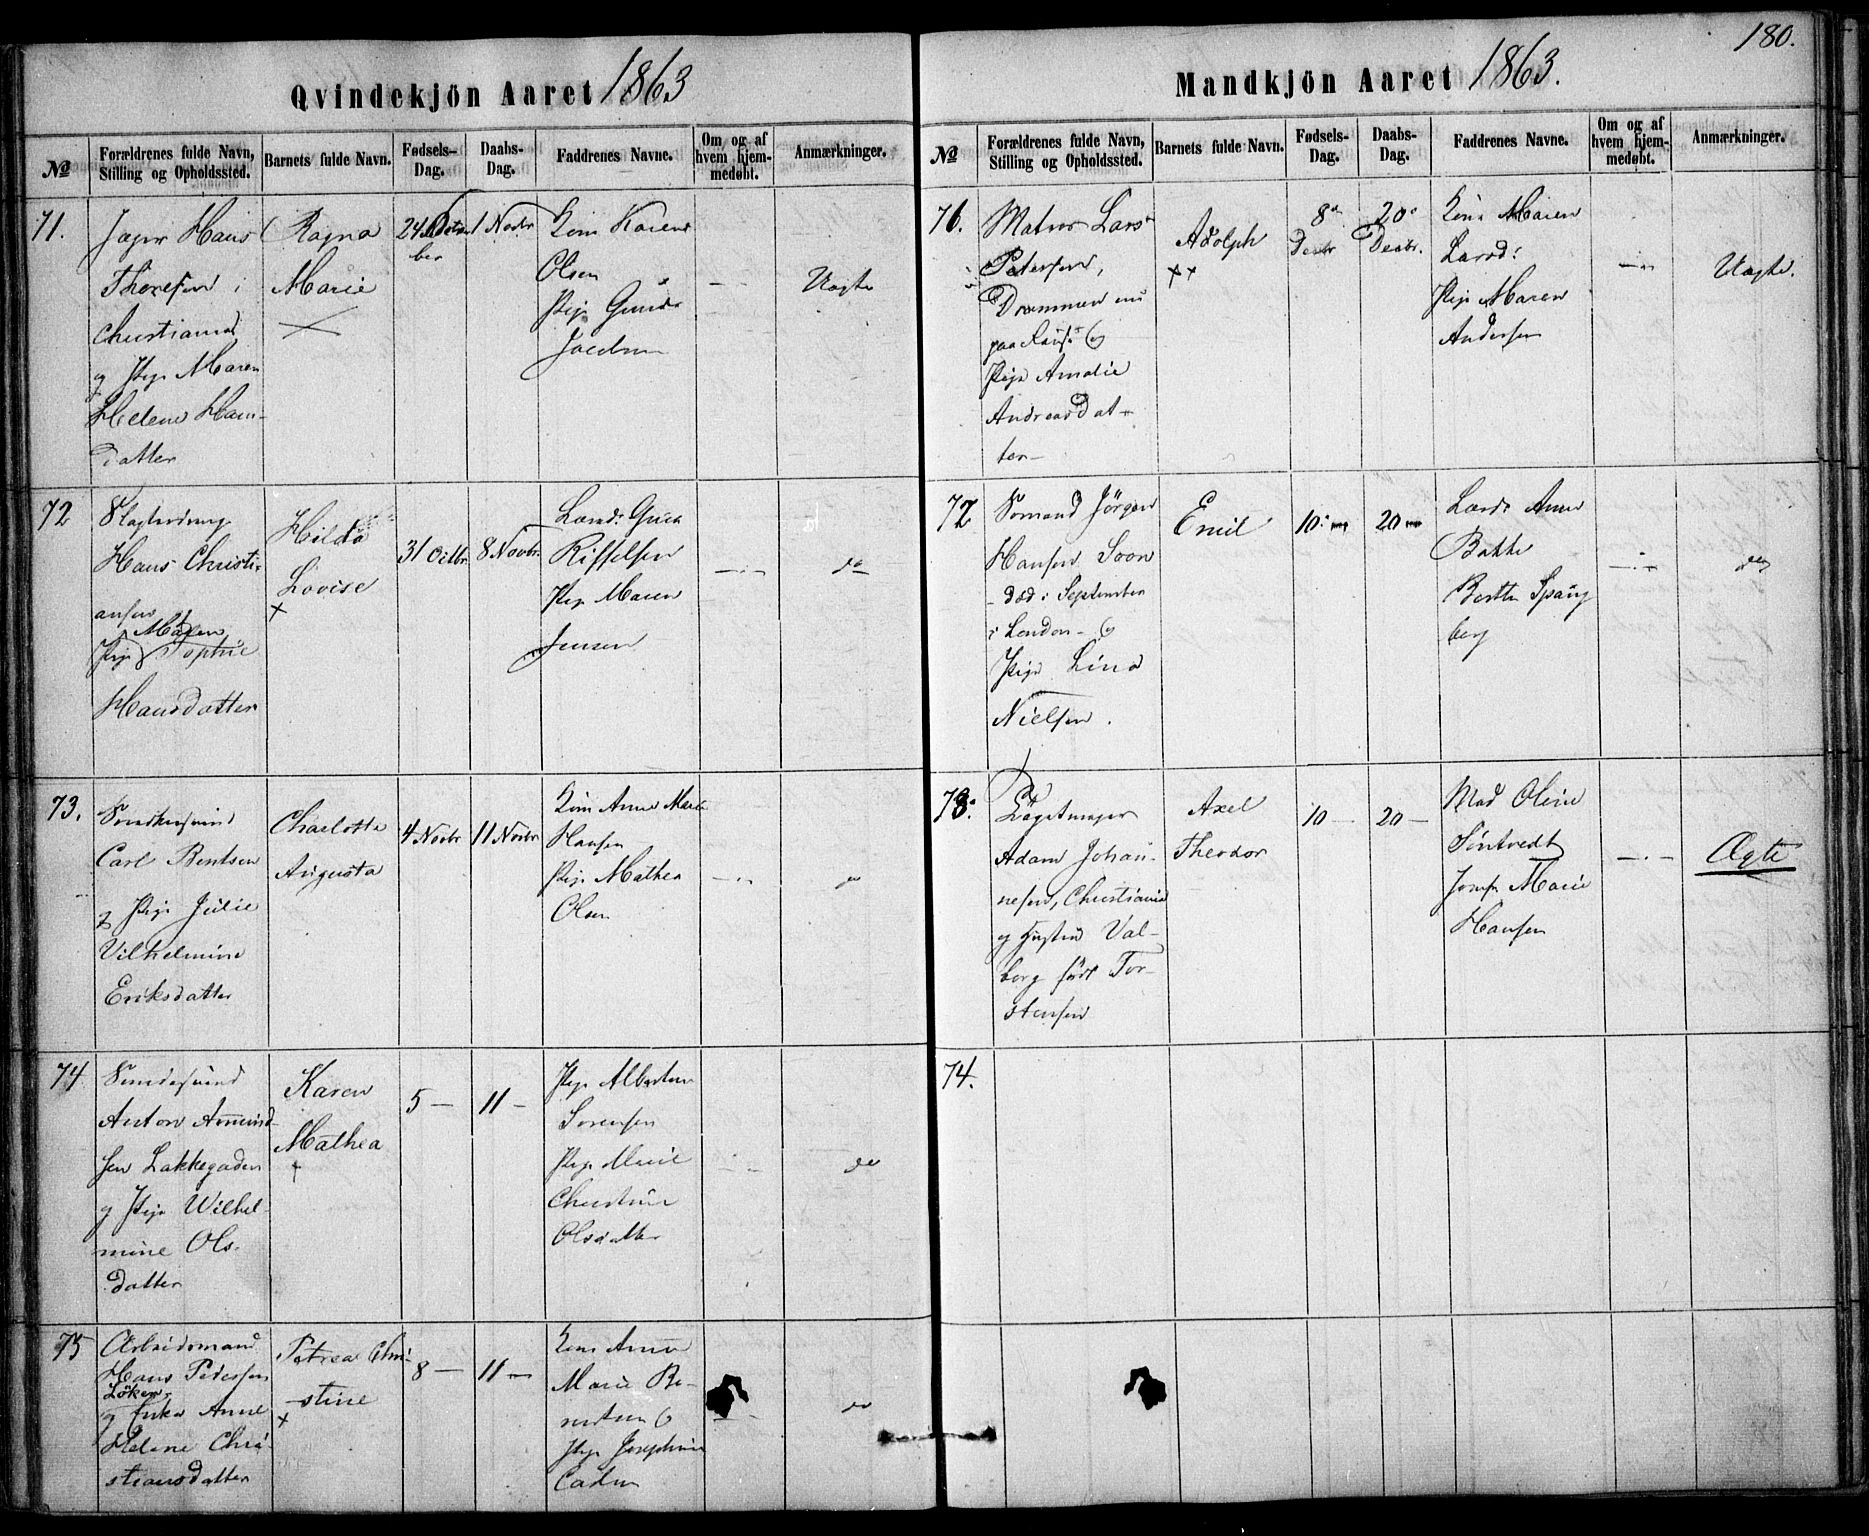 180.
Qvindekjön Aaret 1863
№
Forældrenes fulde Navn,
Stilling og Opholdssted.
Barnets fulde Navn.
Fødsels-
Dag.
Daabs-
Dag.
Faddrenes Navne.
Om og af
hvem hjem-
medøbt.
Anmærkninger.
71.
Jæger Hans
Thoresen i
Christiania
og Pige Maren
Helene Hans-
datter
Ragna
Marie
24 Octo
ber
1 Novbr
Kone Karen
Olsen
Pige
Jacobsen
Uægte
72
Hans Christi-
ansen
Maren
Pige Sophie
Hansdatter
Hilda
Lovise
31 Octbr
8 Novbr
Riffelsen
Pige Maren
Jensen
do
73.
Carl Bentsen
og Pige Julie
Vilhelmine
Eriksdatter
Charlotte
Augusta
4 Novbr
11 Novbr
Kone Anne Marie
Hansen
Pige Mathea
Olsen
do
74
Anton Amund-
sen Lakkegaden
og Pige Wilhel-
mine Ols-
datter
Karen
Mathea
5 —
11 —
Pige
Sørensen
Pige Marie
Christine
Olsdatter
do
75
Arbeidsmand
Hans Pedersen
Löken
og Enke Anne
Helene Chri-
stiansdatter
Petrea Chri-
stine
8 —
11 —
Kone Anne
Marie Be-
rntsen og
Pige Josephine
do
Mandkjön Aaret 1863.
№
Forældrenes fulde Navn,
Stilling og Opholdssted.
Barnets fulde Navn.
Fødsels-
Dag.
Daabs-
Dag.
Faddrenes Navne.
Om og af
hvem hjem-
medøbt.
Anmærkninger.
76.
Matros Lars
Petersen,
Drammen nu
paa Reise og
Pige Amalie
Andreasdat-
ter
Adolph
8
Decbr
20
Decbr.
Kone Maren
Larsd:
Pige Maren
Andersen
Uægte.
72
Sømand Jörgen
Hansen Soon
død i September
i London og
Pige Lina
Nielsen.
Emil
10
20
Anne
Bakke
Berthe Spang
berg
do
73.
Adam Johan-
nesen, Christiania
og Hustru Val-
borg födt Tor-
stensen
Axel
Theodor
10 —
20 —
Mad Oline
Söntvedt
Jomfr Marie
Hansen
Ægte
74.